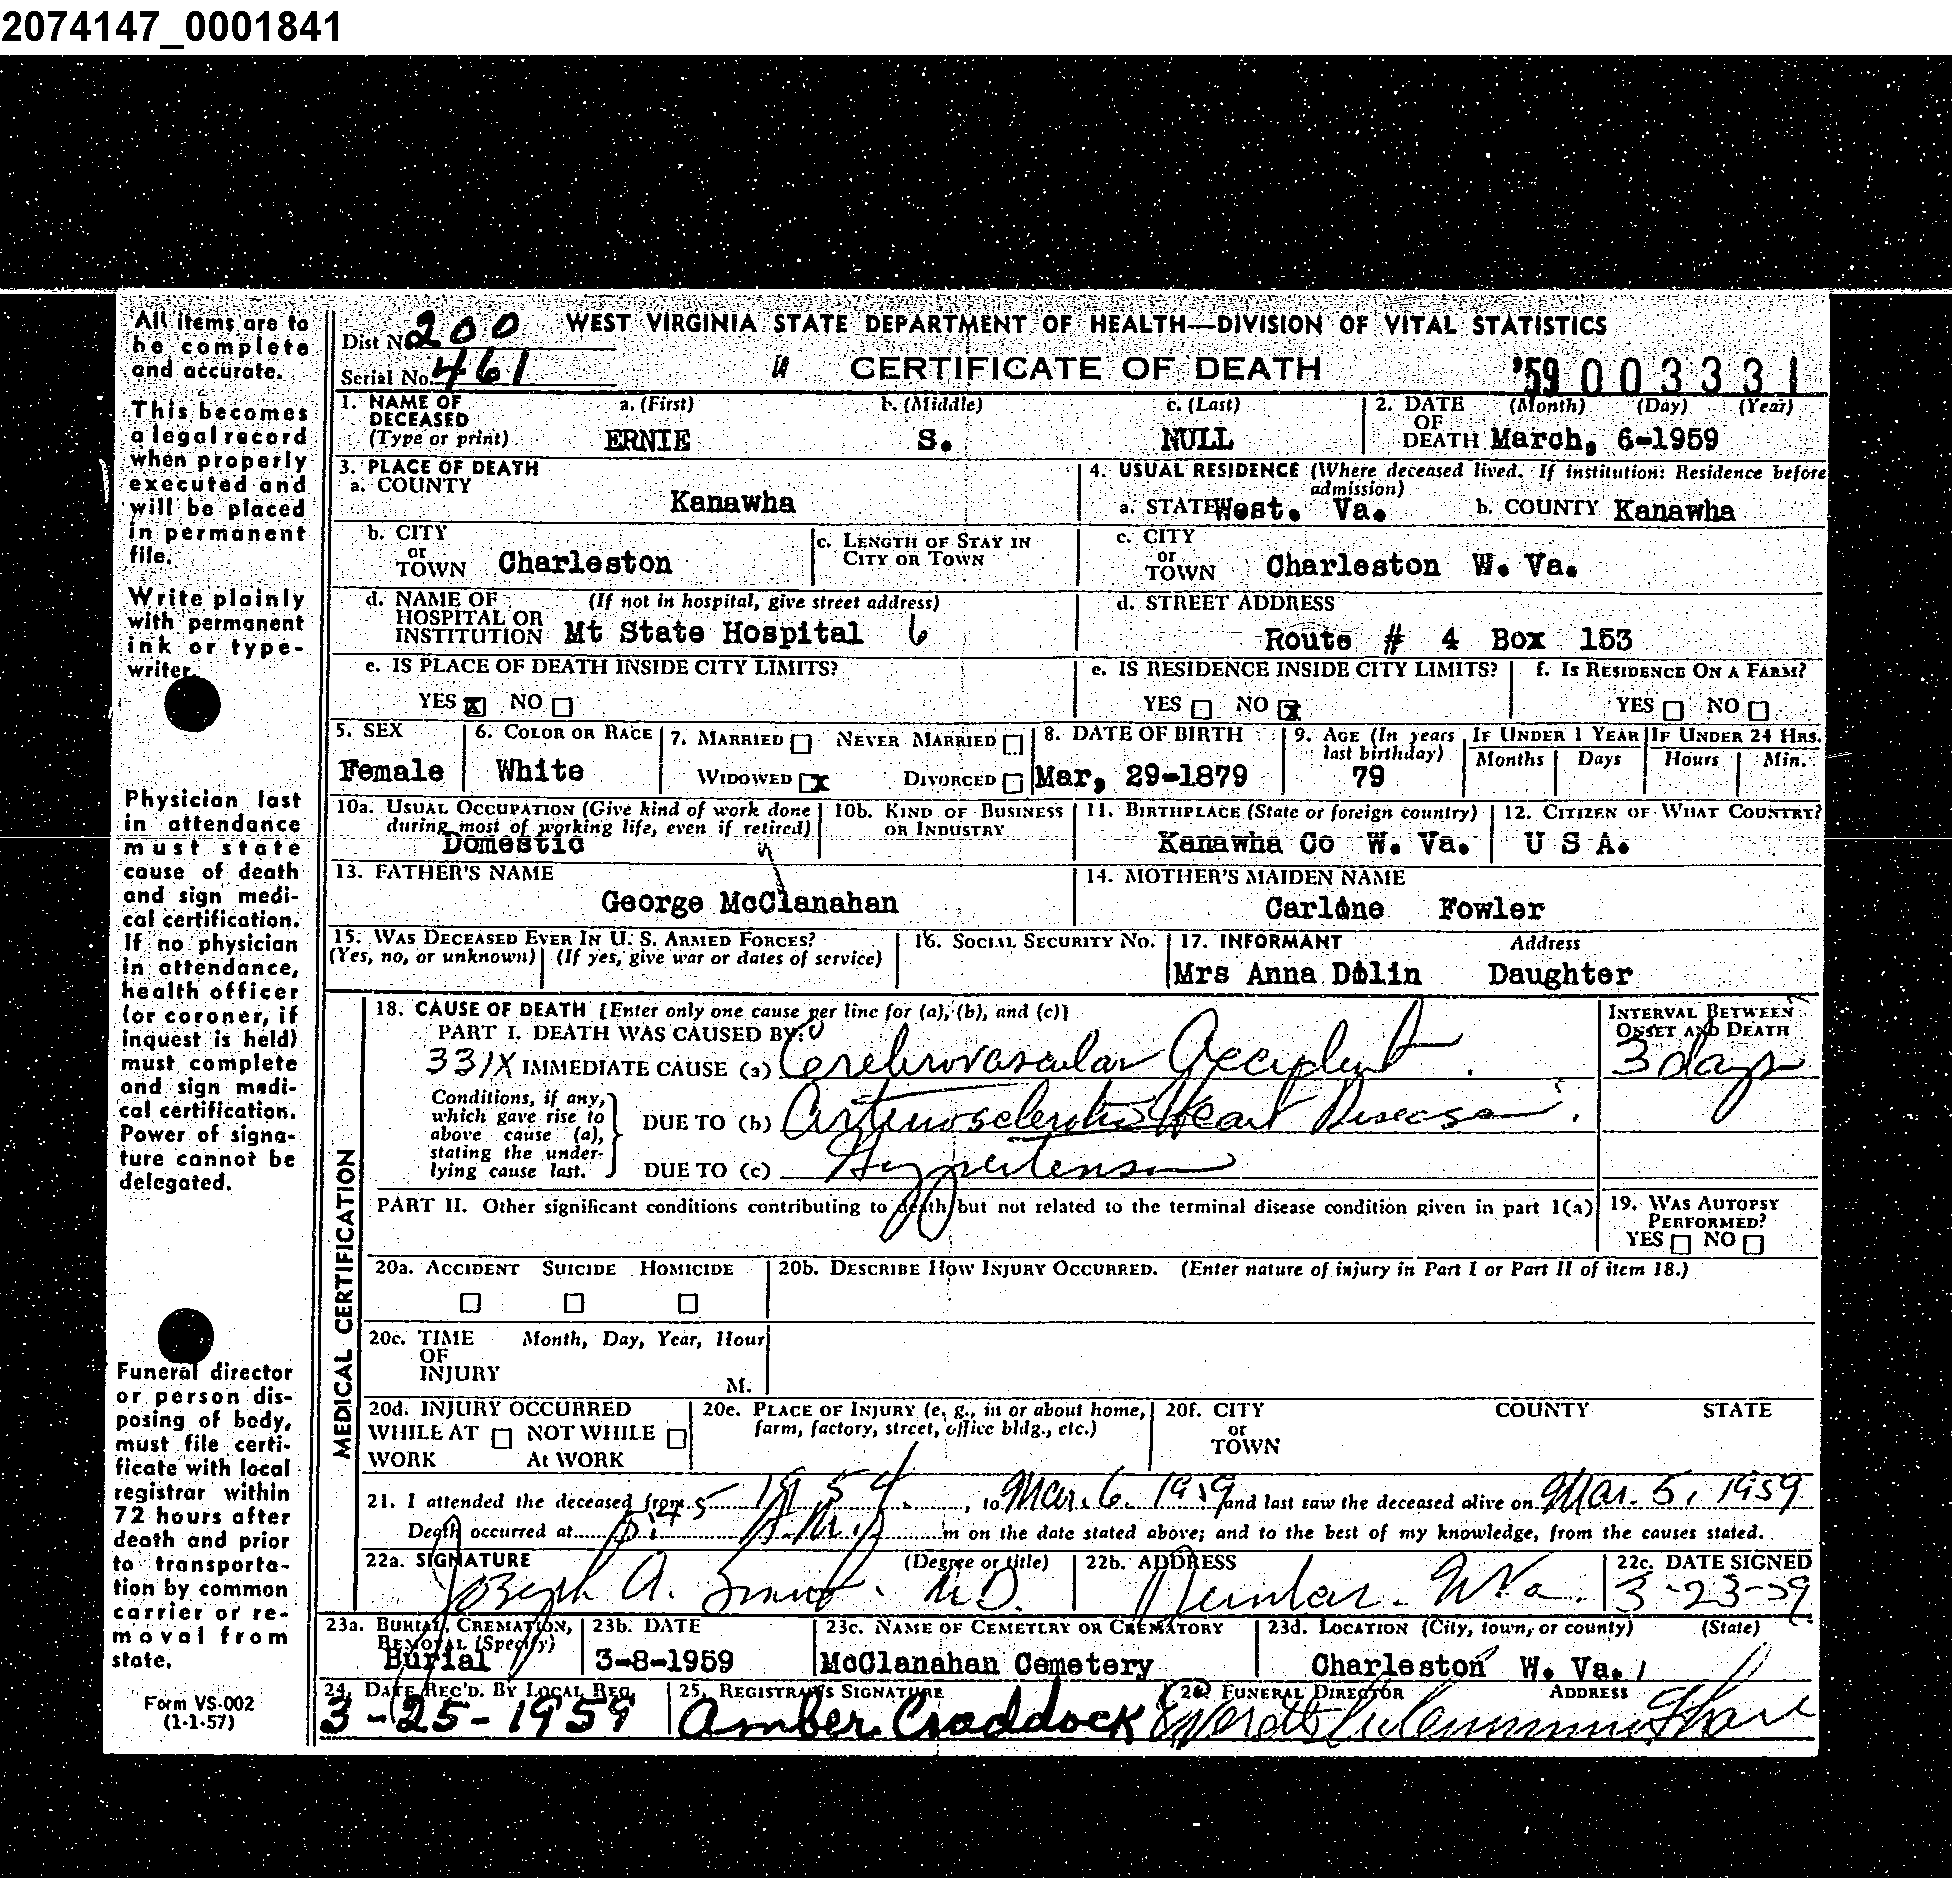 2074147_0001841
All items are to
be complete
and accurate.
This becomes
a legal record
when properly
executed and
will be placed
in permanent
file.
Write plainly
with permanent
ink or type-
writer.
Physician last
in attendance
must state
cause of death
and sign medi-
cal certification.
If no physician
in attendance,
health officer
(or coroner, if
inquest is held)
must complete
and sign medi-
cal certification.
Power of signa-
ture cannot be
delegated.
Funeral director
or person dis-
posing of body,
must file certi-
ficate with local
registrar within
72 hours after
death and prior
to transporta-
tion by common
carrier or re-
moval from
state.
Form VS-002
(1-1-57)
Dist No. 200 WEST VIRGINIA STATE DEPARTMENT OF HEALTH—DIVISION OF VITAL STATISTICS
Serial No. 461 CERTIFICATE OF DEATH '59 003331
1. NAME OF DECEASED (Type or print) a. (First) ERNIE b. (Middle) S. c. (Last) NULL 2. DATE OF DEATH (Month) (Day) (Year) March, 6-1959
3. PLACE OF DEATH
a. COUNTY Kanawha
4. USUAL RESIDENCE (Where deceased lived. If institution: Residence before admission)
a. STATE West. Va. b. COUNTY Kanawha
b. CITY or TOWN Charleston c. LENGTH OF STAY IN CITY OR TOWN
c. CITY or TOWN Charleston W. Va.
d. NAME OF HOSPITAL OR INSTITUTION (If not in hospital, give street address) Mt State Hospital 6
d. STREET ADDRESS Route # 4 Box 153
e. IS PLACE OF DEATH INSIDE CITY LIMITS?
YES X NO
e. IS RESIDENCE INSIDE CITY LIMITS? f. IS RESIDENCE ON A FARM?
YES NO X YES NO
5. SEX Female 6. COLOR OR RACE White 7. MARRIED NEVER MARRIED WIDOWED X DIVORCED 8. DATE OF BIRTH Mar, 29-1879 9. AGE (In years last birthday) 79 IF UNDER 1 YEAR Months Days IF UNDER 24 HRS. Hours Min.
10a. USUAL OCCUPATION (Give kind of work done during most of working life, even if retired) Domestic 10b. KIND OF BUSINESS OR INDUSTRY 11. BIRTHPLACE (State or foreign country) Kanawha Co W. Va. 12. CITIZEN OF WHAT COUNTRY? U S A.
13. FATHER'S NAME George McClanahan 14. MOTHER'S MAIDEN NAME Carlone Fowler
15. WAS DECEASED EVER IN U. S. ARMED FORCES? (Yes, no, or unknown) (If yes, give war or dates of service) 16. SOCIAL SECURITY NO. 17. INFORMANT Address
Mrs Anna Dolin Daughter
MEDICAL CERTIFICATION
18. CAUSE OF DEATH [Enter only one cause per line for (a), (b), and (c)] INTERVAL BETWEEN ONSET AND DEATH
PART I. DEATH WAS CAUSED BY:
331X IMMEDIATE CAUSE (a) Cerebrovascular Accident. 3 days
Conditions, if any, which gave rise to above cause (a), stating the underlying cause last.
DUE TO (b) Arteriosclerotic Heart Disease.
DUE TO (c) Hypertension
PART II. Other significant conditions contributing to death but not related to the terminal disease condition given in part 1(a) 19. WAS AUTOPSY PERFORMED?
YES NO
20a. ACCIDENT SUICIDE HOMICIDE 20b. DESCRIBE HOW INJURY OCCURRED. (Enter nature of injury in Part I or Part II of item 18.)
20c. TIME OF INJURY Month, Day, Year, Hour M.
20d. INJURY OCCURRED WHILE AT WORK NOT WHILE At WORK 20e. PLACE OF INJURY (e. g., in or about home, farm, factory, street, office bldg., etc.) 20f. CITY or TOWN COUNTY STATE
21. I attended the deceased from 1954, to Mar. 6. 1959 and last saw the deceased alive on Mar. 5, 1959
Death occurred at m on the date stated above; and to the best of my knowledge, from the causes stated.
22a. SIGNATURE (Degree or title) Joseph A. M.D. 22b. ADDRESS Dunbar. W.Va. 22c. DATE SIGNED 3-23-59
23a. BURIAL, CREMATION, REMOVAL (Specify) Burial 23b. DATE 3-8-1959 23c. NAME OF CEMETERY OR CREMATORY McClanahan Cemetery 23d. LOCATION (City, town, or county) (State) Charleston W. Va.
24. DATE REC'D. BY LOCAL REG. 3-25-1959 25. REGISTRAR'S SIGNATURE Amber Craddock 26. FUNERAL DIRECTOR ADDRESS